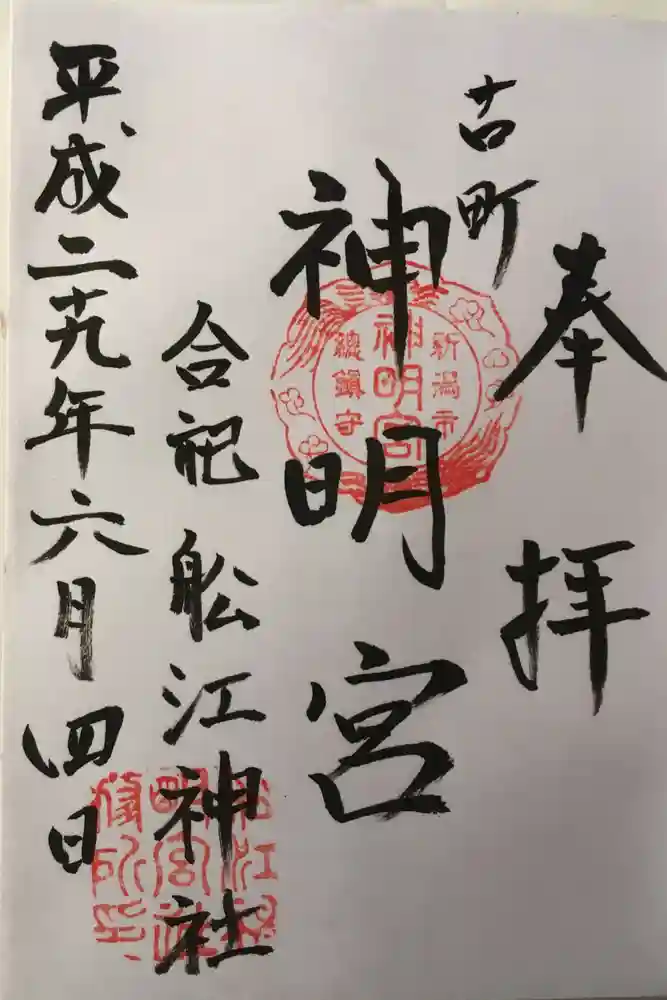 奉拝
古町
神明宮
新潟市
神明宮
總鎮守
合祀 舩江神社
平成二十九年六月四日